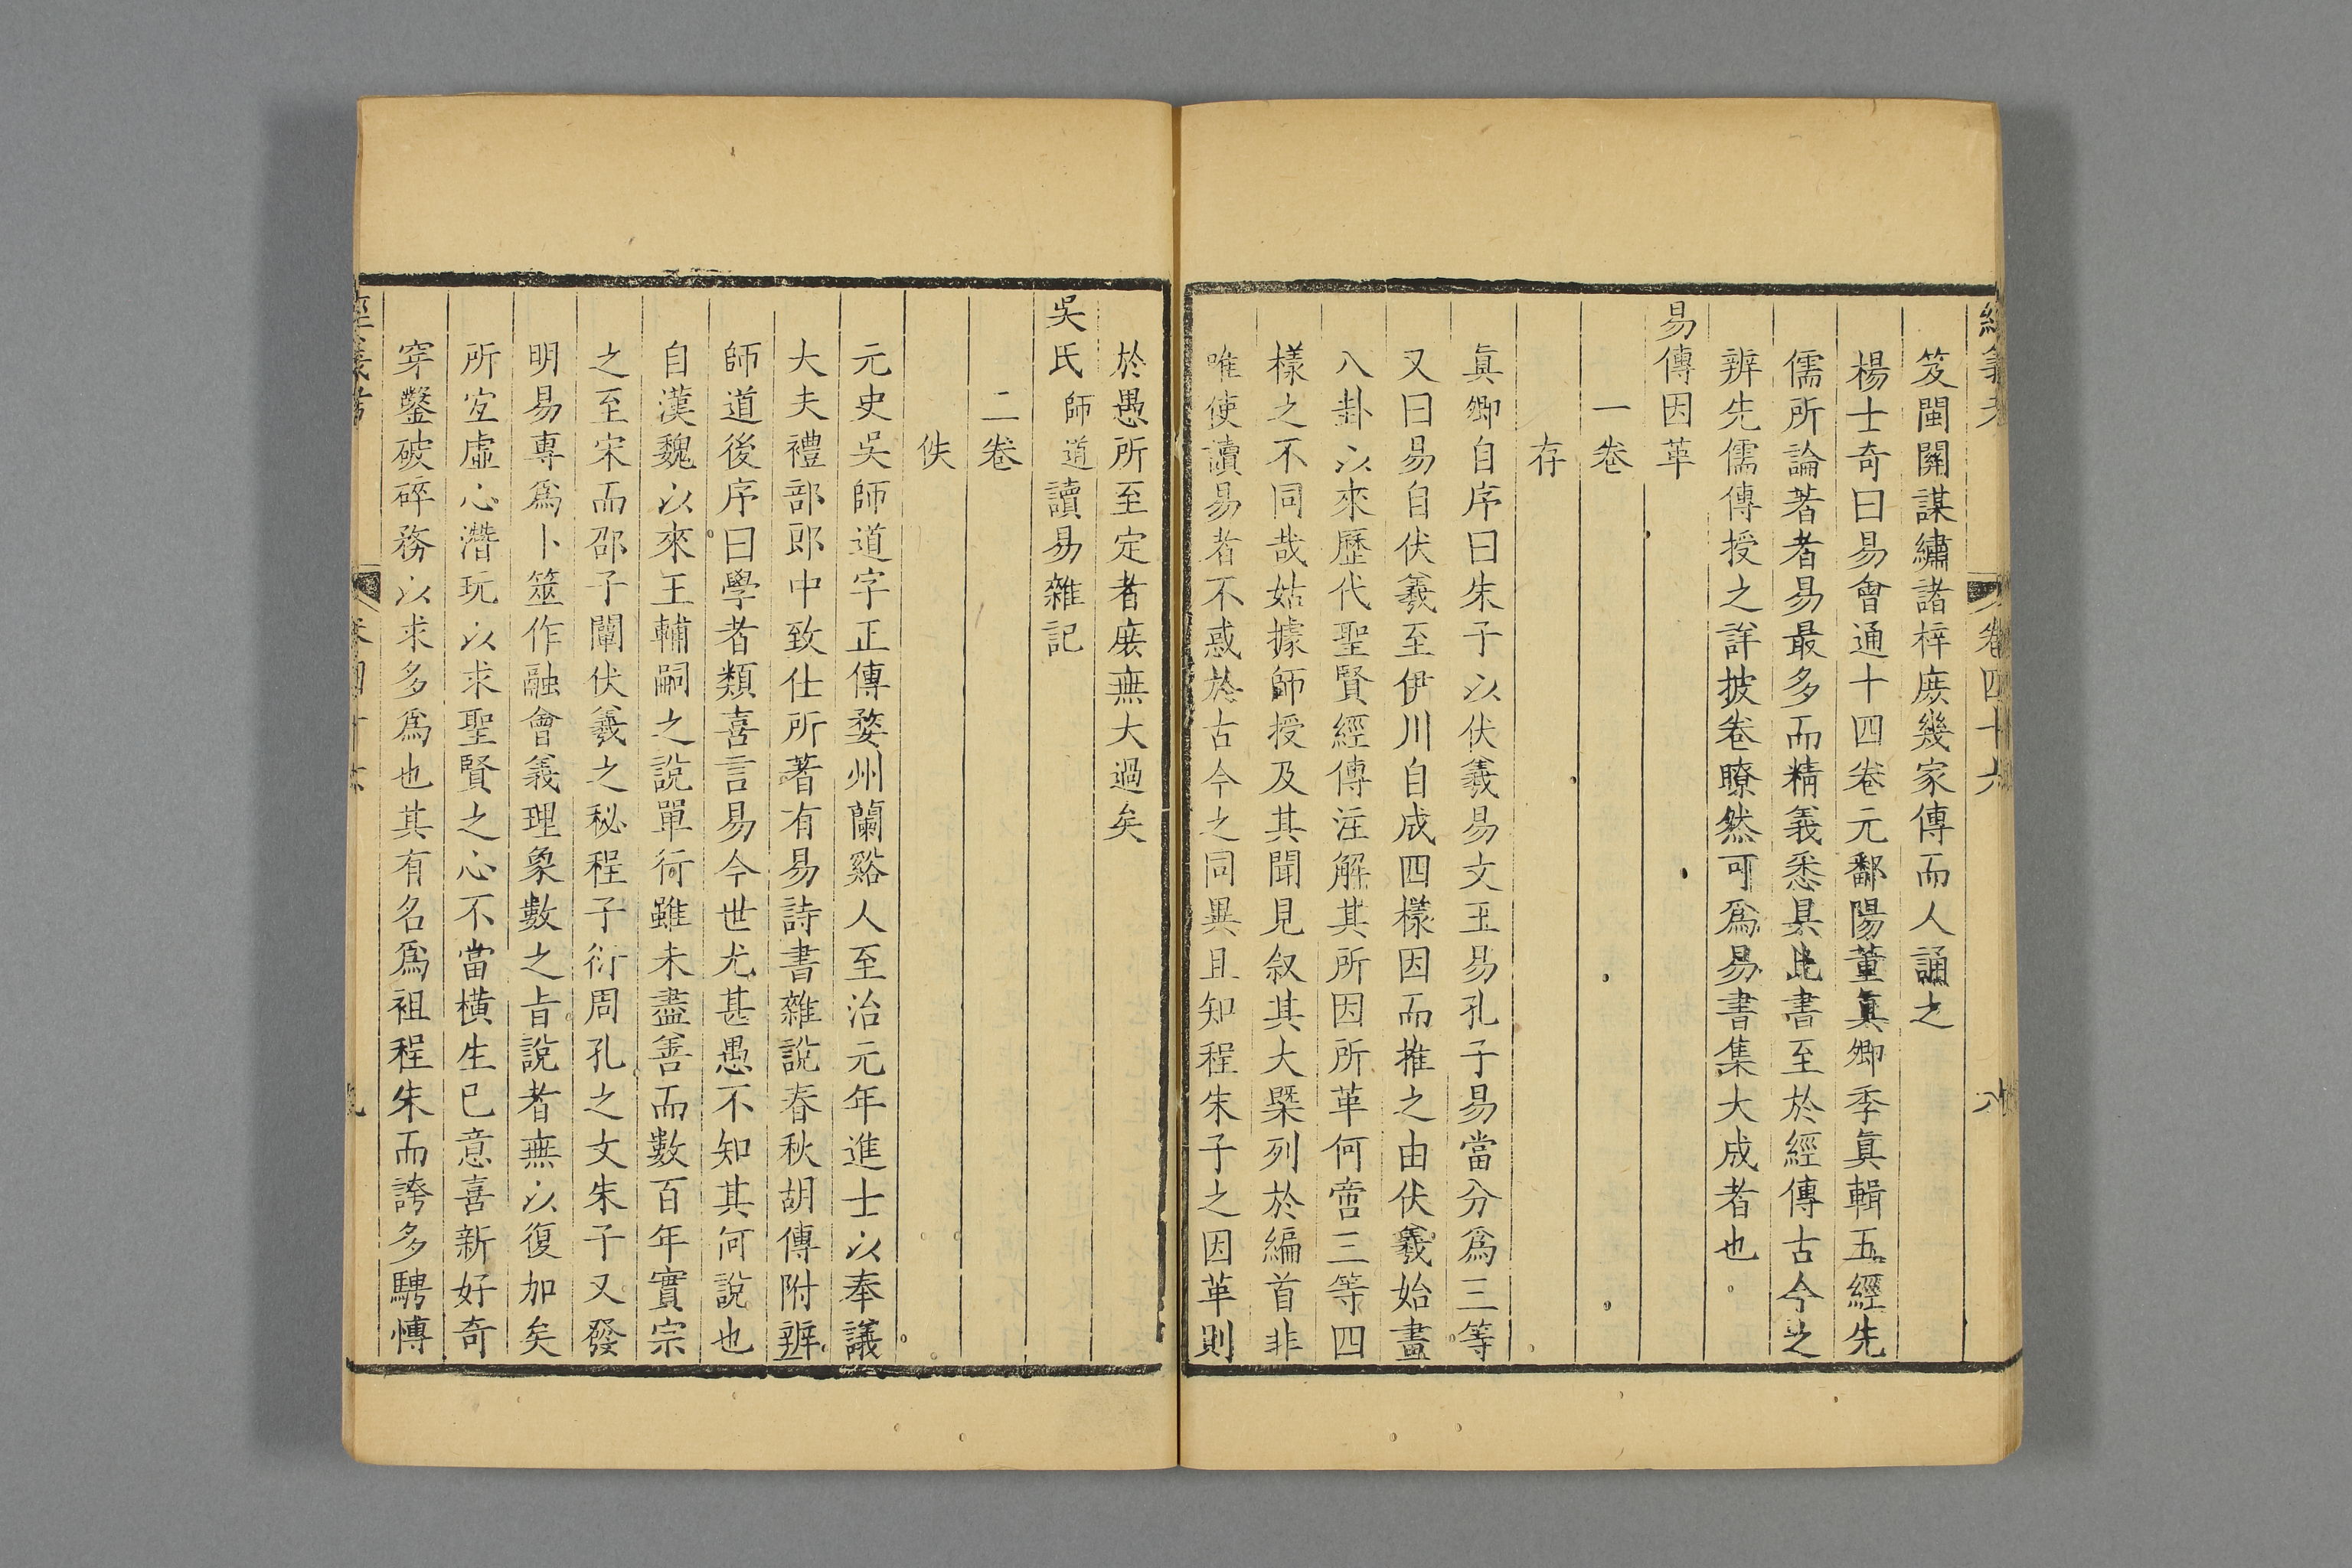 經義考 卷四十六 八
笈閩關謀繡諸梓庻幾家傳而人誦之
楊士奇曰易會通十四卷元鄱陽董眞卿季眞輯五經先
儒所論著者易最多而精義悉具此書至於經傳古今之
辨先儒傳授之詳披卷瞭然可爲易書集大成者也
易傳因革
一卷
存
眞卿自序曰朱子以伏羲易文王易孔子易當分爲三等
又曰易自伏羲至伊川自成四樣因而推之由伏羲始畫
八卦以來歷代聖賢經傳注解其所因所革何啻三等四
樣之不同哉姑據師授及其聞見叙其大槩列於編首非
唯使讀易者不惑於古今之同異且知程朱子之因革則
於愚所至定者庻無大過矣
吳氏師道讀易雜記
二卷
佚
元史吳師道字正傳婺州蘭谿人至治元年進士以奉議
大夫禮部郎中致仕所著有易詩書雜說春秋胡傳附辨
師道後序曰學者類喜言易今世尤甚愚不知其何說也
自漢魏以來王輔嗣之說單行雖未盡善而數百年實宗
之至宋而邵子闡伏羲之秘程子衍周孔之文朱子又發
明易專爲卜筮作融會義理象數之旨說者無以復加矣
所宐虛心潛玩以求聖賢之心不當橫生已意喜新好奇
穿鑿破碎務以求多爲也其有名爲祖程朱而誇多騁愽
經義考 卷四十六 九